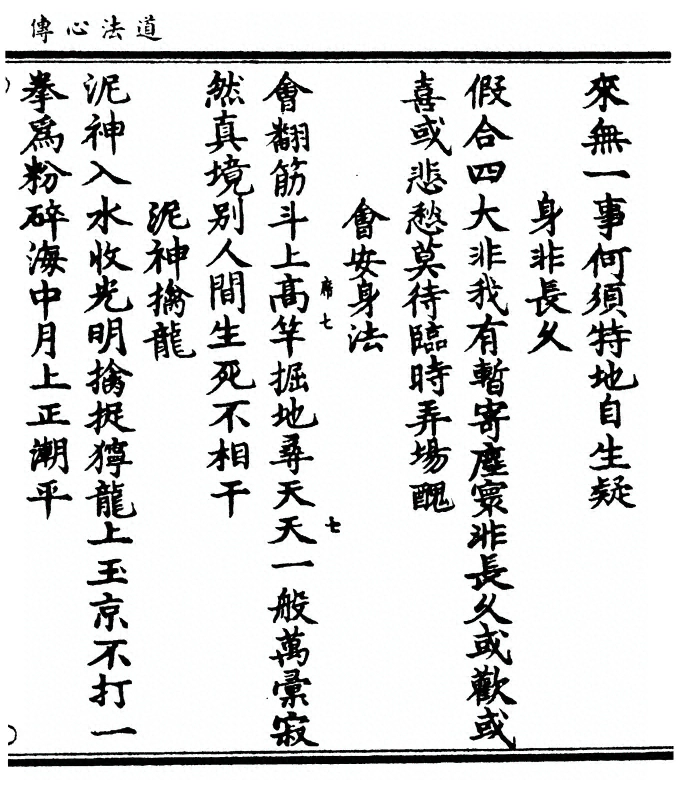 道法心傳
來無一事何須特地自生疑
身非長久
假合四大非我有暫寄塵寰非長久或歡或
喜或悲愁莫待臨時弄場醜
會安身法
會翻筋斗上高竿掘地尋天天一般萬彙寂
席七
七
然真境別人間生死不相干
泥神擒龍
泥神入水收光明擒捉獰龍上玉京不打一
拳爲粉碎海中月上正潮平